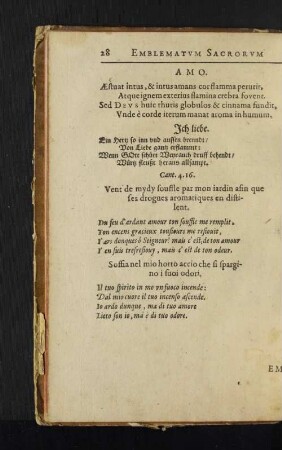 28 EMBLEMATVM SACRORVM
AMO.
Æstuat intus, & intus amans cor flamma perurit,
Atque ignem exterius flamina crebra fovent.
Sed DEVS huic thuris globulos & cinnama fundit,
Vnde è corde iterum manat aroma in humum.
Ich liebe.
Ein Hertz so inn vnd aussen brendt/
Von Liebe gantz
Wenn GOtt schöne Weyrauch druff behendt/
Würtz fleußt herauß allsampt.
Cant. 4.16.
Vent de mydy souffle par mon iardin afin que
ses drogues aromatiques en disti-
lent.
Du feu d'ardant amour ton souffle me remplit,
Ton encens gracieux tousiours me resiouit,
I'ars doncques ô Seigneur! mais c'est, de ton amour
I'en suis tresresiouy, mais c'est de ton odeur.
Soffia nel mio horto accio che si spargi-
no i suoi odori.
Il tuo spirito in me vn fuoco incende:
Dal mio cuore il tuo incenso ascende.
Io ardo dunque, ma di tuo amore
Lieto son io, ma è di tuo odore.
EM